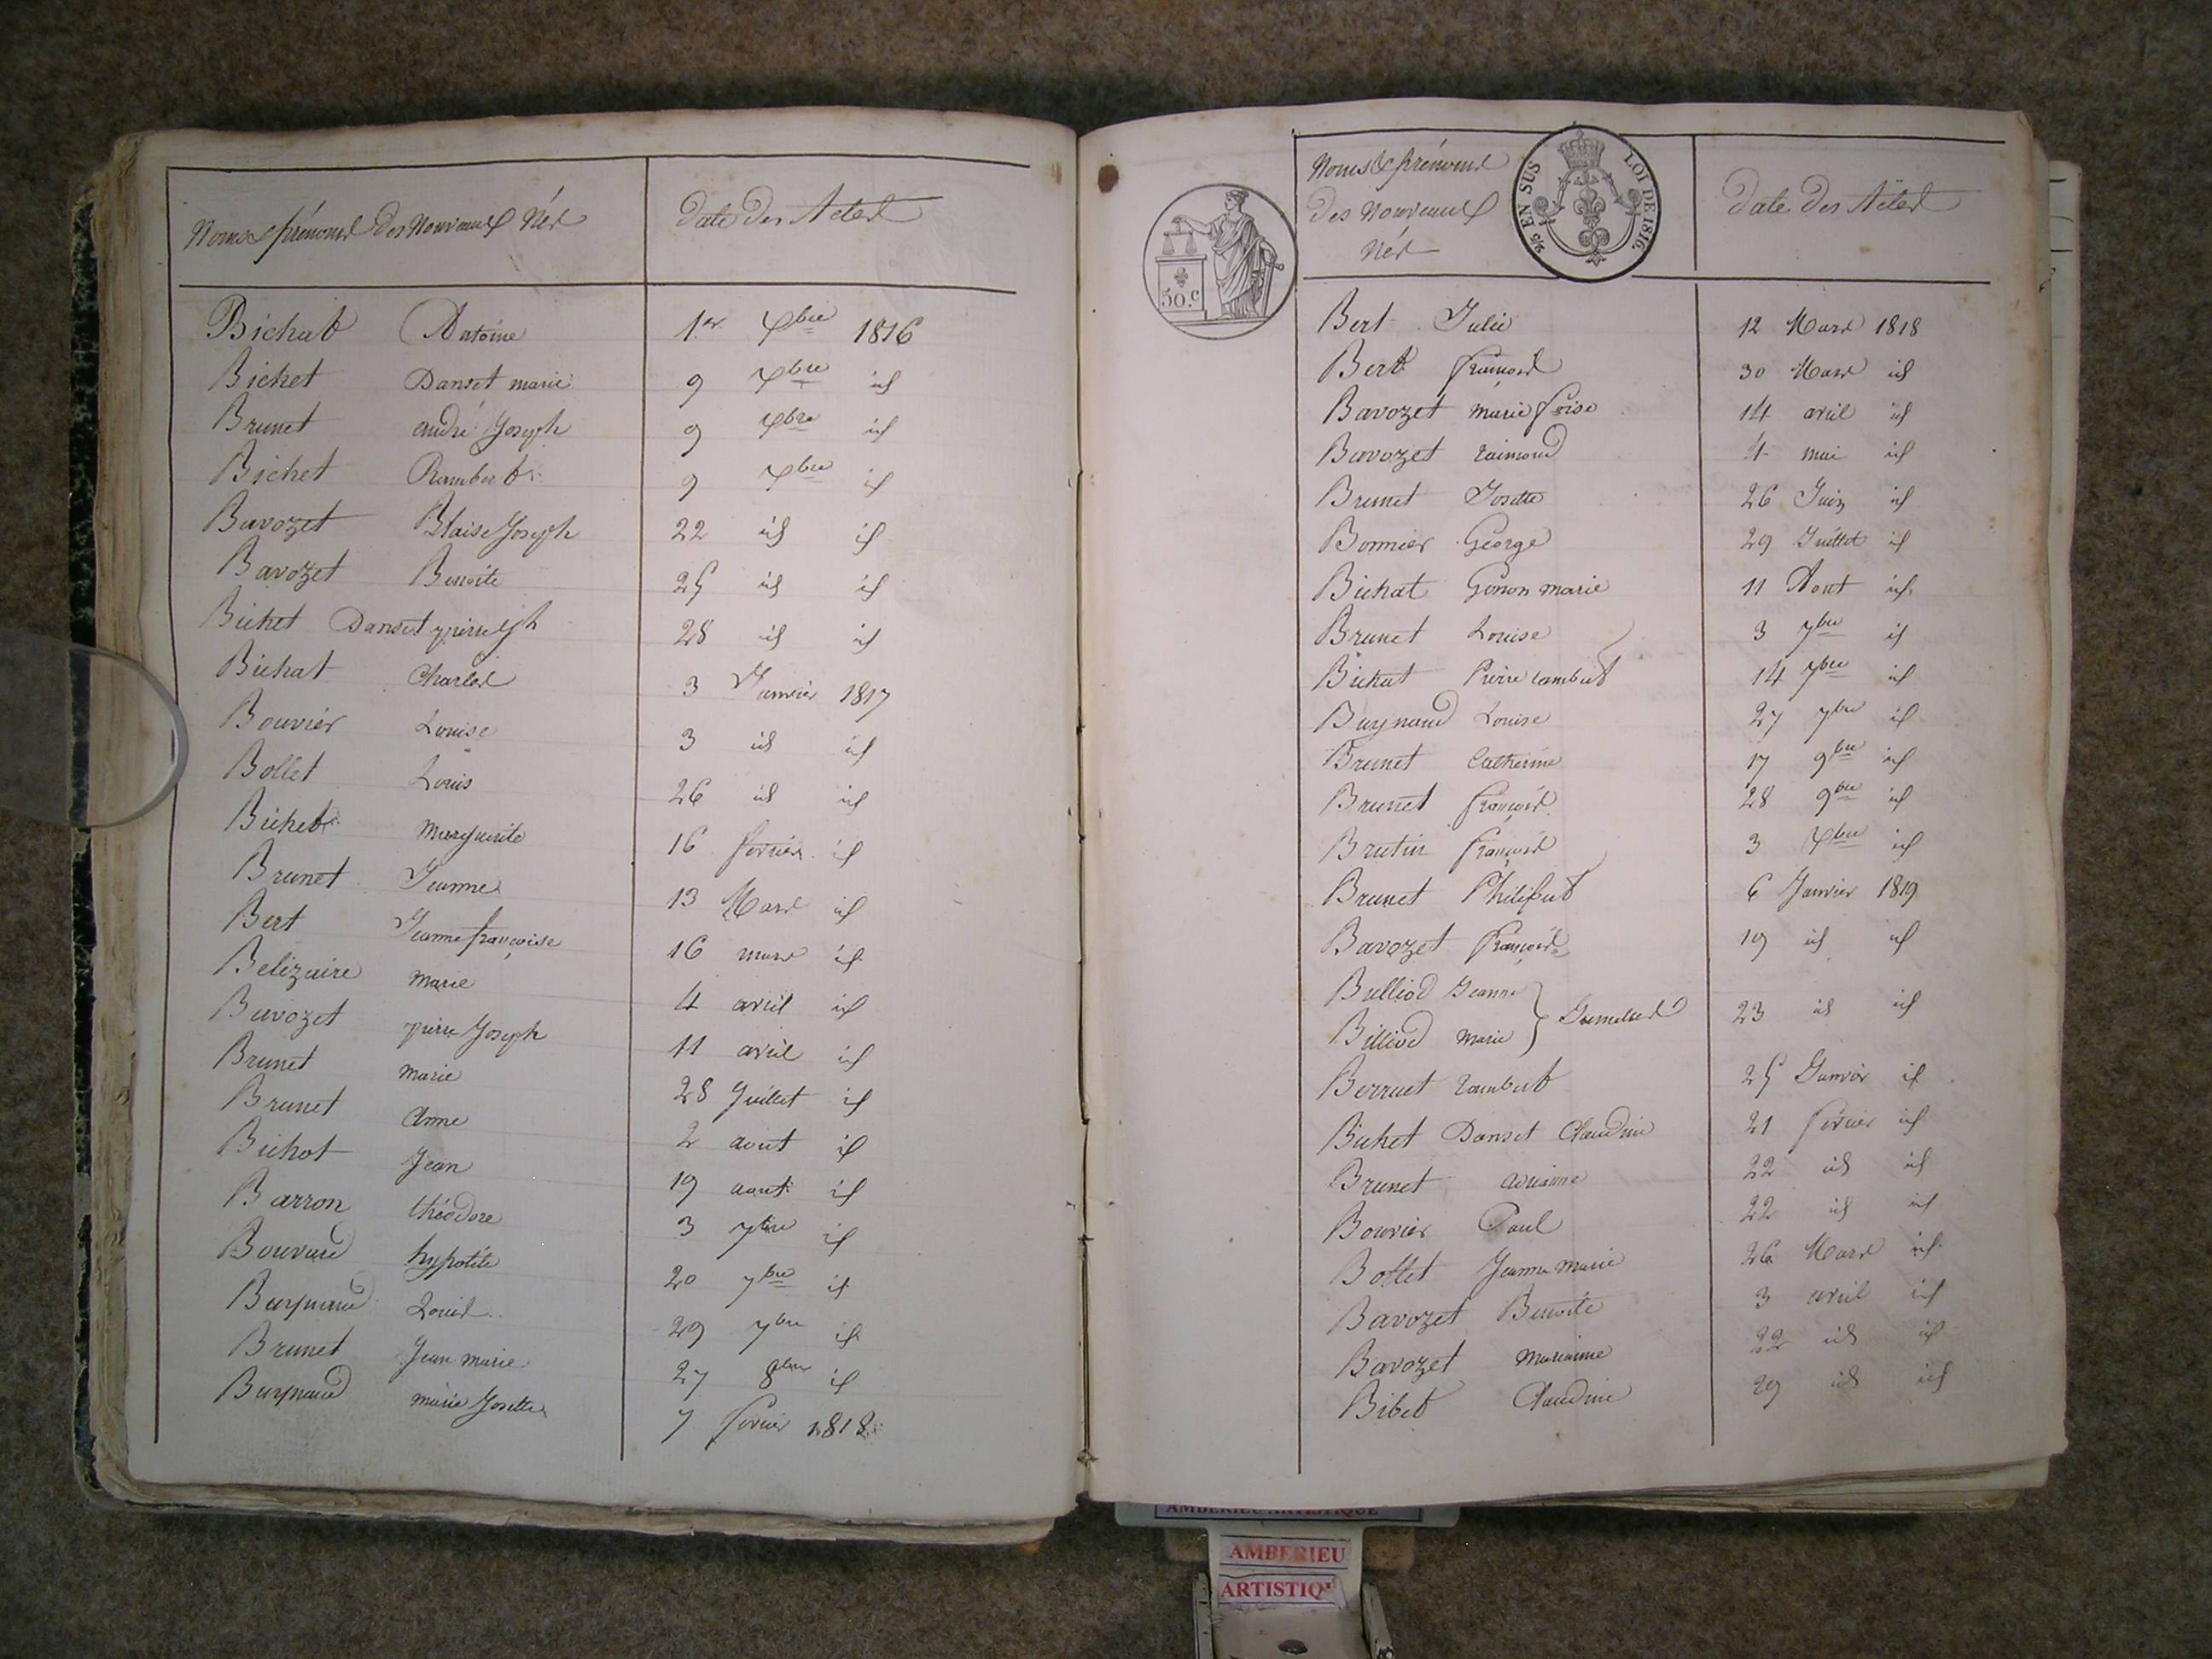 Noms & prénoms des Nouveaux Nés
date des Actes
Bichat Antoine 1er Xbre 1816
Bichet Danset marie 9 Xbre id
Brunet andré Joseph 9 Xbre id
Bichet Rambert 9 Xbre id
Bavozet Blaise Joseph 22 id id
Bavozet Benoite 25 id id
Bichet Danset pierre Jh 28 id id
Bichat Charles 3 Janvier 1817
Bouvier Louise 3 id id
Bollet Louis 26 id id
Bichet Marguerite 16 fevrier id
Brunet Jeanne 13 Mars id
Bert Jeanne françoise 16 mars id
Belizaire Marie 4 avril id
Bavozet pierre Joseph 11 avril id
Brunet Marie 28 Juillet id
Brunet Anne 2 aout id
Bichot Jean 19 aout id
Barron théodore 3 7bre id
Bouvard hypolite 20 7bre id
Buynand Louis 29 7bre id
Brunet Jean marie 27 8bre id
Buynand marie Josette 7 fevrier 1818
50.c
Noms & prénoms
des Nouveaux
Nés
2/5 EN SUS LOI DE 1816.
date des Actes
Bert Julie 12 Mars 1818
Bert françois 30 Mars id
Bavozet marie foise 14 avril id
Bavozet raimond 4 mai id
Brunet Josette 26 Juin id
Bonnier George 29 Juillet id
Bichat Gonon marie 11 Aout id
Brunet Louise 3 7bre id
Bichat Pierre rambert 14 7bre id
Buynand Louise 27 7bre id
Brunet Catherine 17 9bre id
Brunet françois 28 9bre id
Brutin françois 3 Xbre id
Brunet Philibert 6 Janvier 1819
Bavozet françois 19 id id
Bulliod Jeanne
Billiod Marie } Jumelles 23 id id
Berruet rambert 25 Janvier id
Bichet Danset Claudine 21 fevrier id
Brunet 22 id id
Bouvier Paul 22 id id
Bollet Jeanne Marie 26 Mars id
Bavozet Benoite 3 avril id
Bavozet Marianne 22 id id
Bibet Claudine 29 id id
AMBERIEU ARTISTIQUE
AMBERIEU
ARTISTIQ